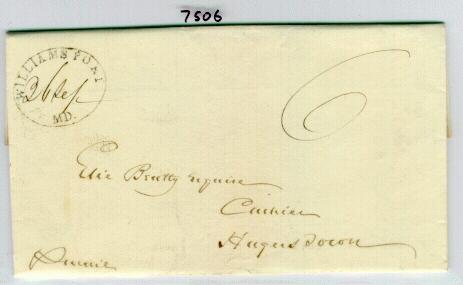 7506
WILLIAMSPORT
26 Sep
MD.
6
Elie Beatty Esquire
Cashier
Hagerstown